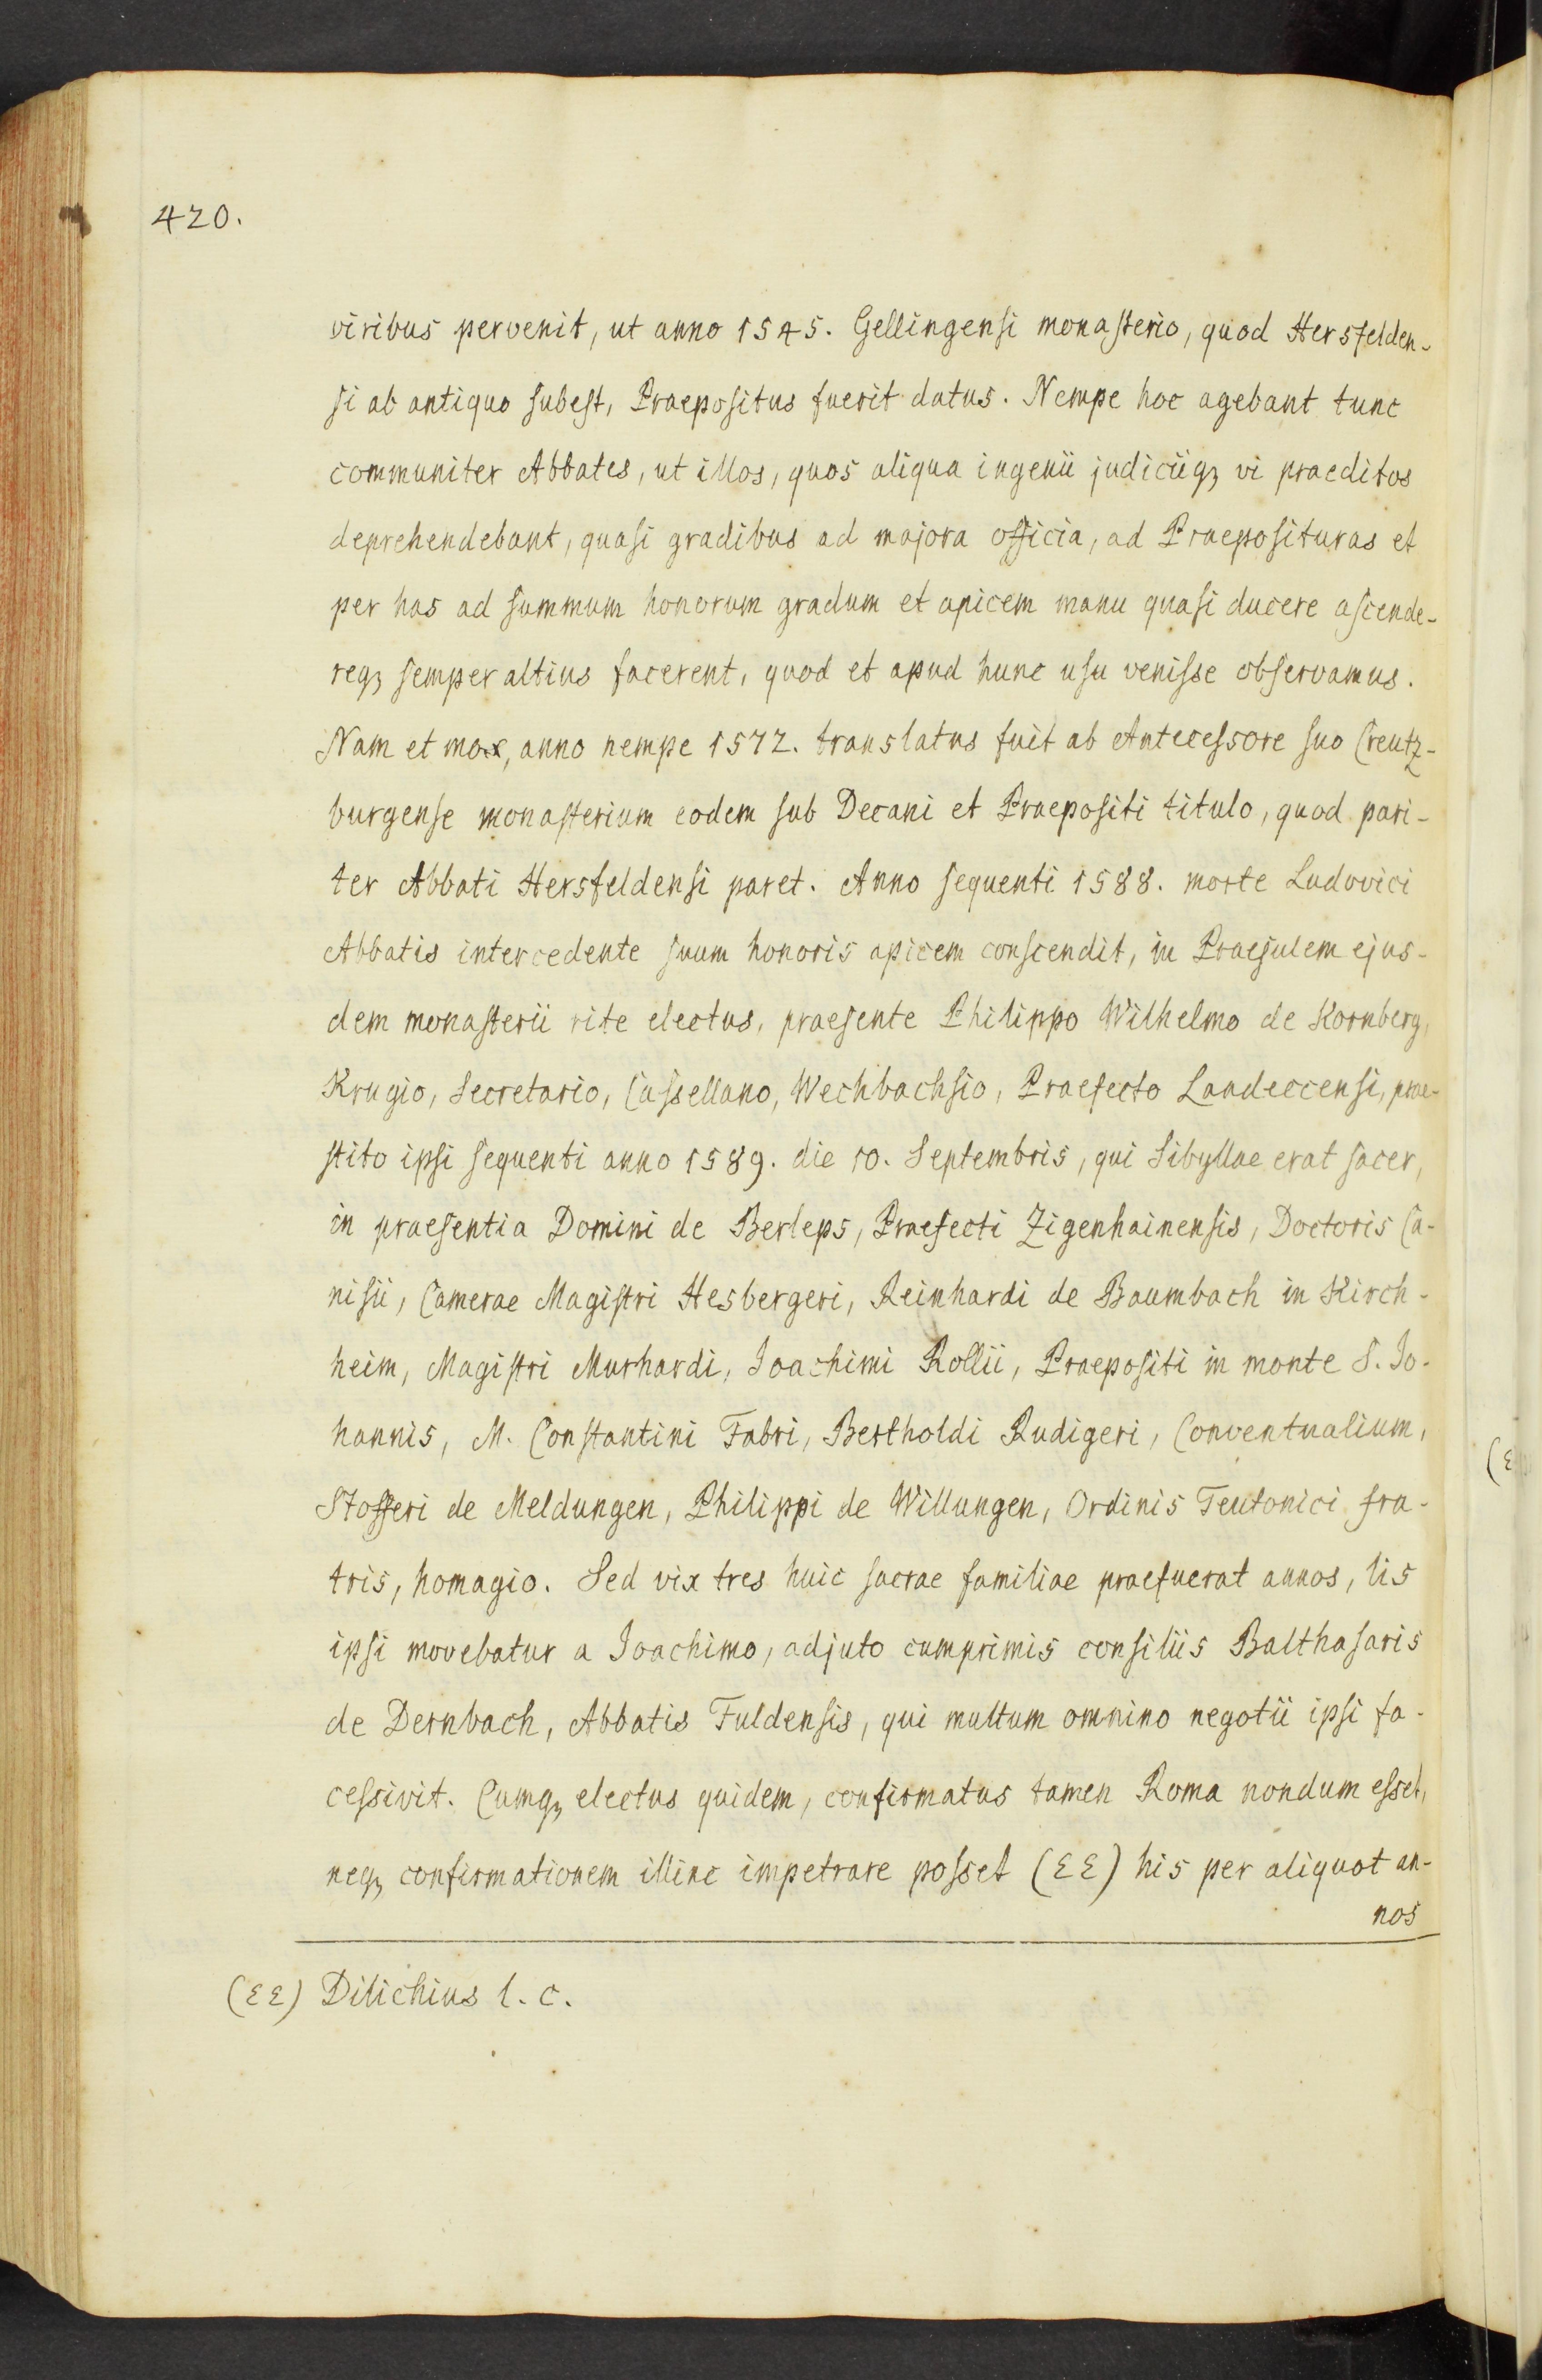 420.
viribus pervenit, ut anno 1545. Gellingensi monasterio, quod Hersfelden-
si ab antiquo subest, Praepositus fuerit datus. Nempe hoc agebant tunc
communiter Abbates, ut illos, quos aliqua ingenii judiciiqꝫ vi praeditos
deprehendebant, quasi gradibus ad majora officia, ad Praeposituras et
per has ad summum honorum gradum et apicem manu quasi ducere ascende-
reqꝫ semper altius facerent, quod et apud hunc usu venisse observamus.
Nam et mox, anno nempe 1572. translatus fuit ab Antecessore suo Creutz-
burgense monasterium eodem sub Decani et Praepositi titulo, quod pari-
ter Abbati Hersfeldensi paret. Anno sequenti 1588. morte Ludovici
Abbatis intercedente suum honoris apicem conscendit, in Praesulem ejus-
dem monasterii rite electus, praesente Philippo Wilhelmo de Kornberg,
Krugio, Secretario, Cassellano, Wechbachsio, Praefecto Landeccensi, prae-
stito ipsi sequenti anno 1589. die 10. Septembris, qui Sibyllae erat sacer,
in praesentia Domini de Berleps, Praefecti Zigenhainensis, Doctoris Ca-
nisii, Camerae Magistri Hesbergeri, Reinhardi de Baumbach in Kirch-
heim, Magistri Murhardi, Joachimi Rollii, Praepositi in monte S. Jo-
hannis, M. Constantini Fabri, Bertholdi Rudigeri, Conventualium,
Stofferi de Meldungen, Philippi de Willungen, Ordinis Teutonici fra-
tris, homagio. Sed vix tres huic sacrae familiae praefuerat annos, lis
ipsi movebatur a Joachimo, adjuto cumprimis consiliis Balthasaris
de Dernbach, Abbatis Fuldensis, qui multum omnino negotii ipsi fa-
cessivit. Cumqꝫ electus quidem, confirmatus tamen Roma nondum esset,
neqꝫ confirmationem illinc impetrare posset (εε) his per aliquot an-
nos
(εε) Dilichius l. c.